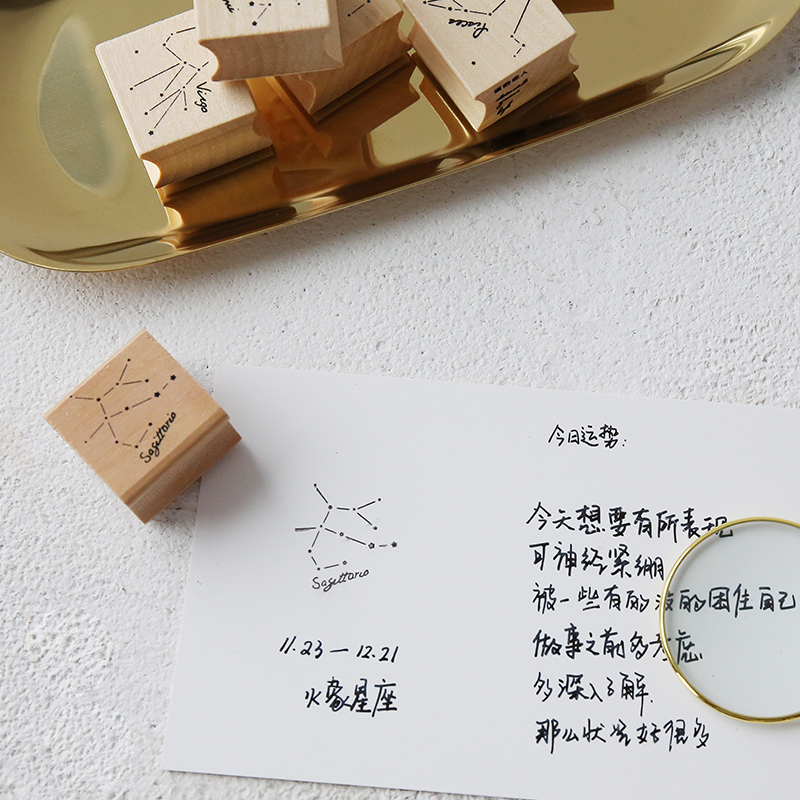 Virgo
Pisces
Sagittario
Sagittario
11.23—12.21
火象星座
今日运势:
今天想要有所表现
可神经紧绷
被一些有的没的困住自己
做事之前多考虑
多深入了解.
那么状况好很多